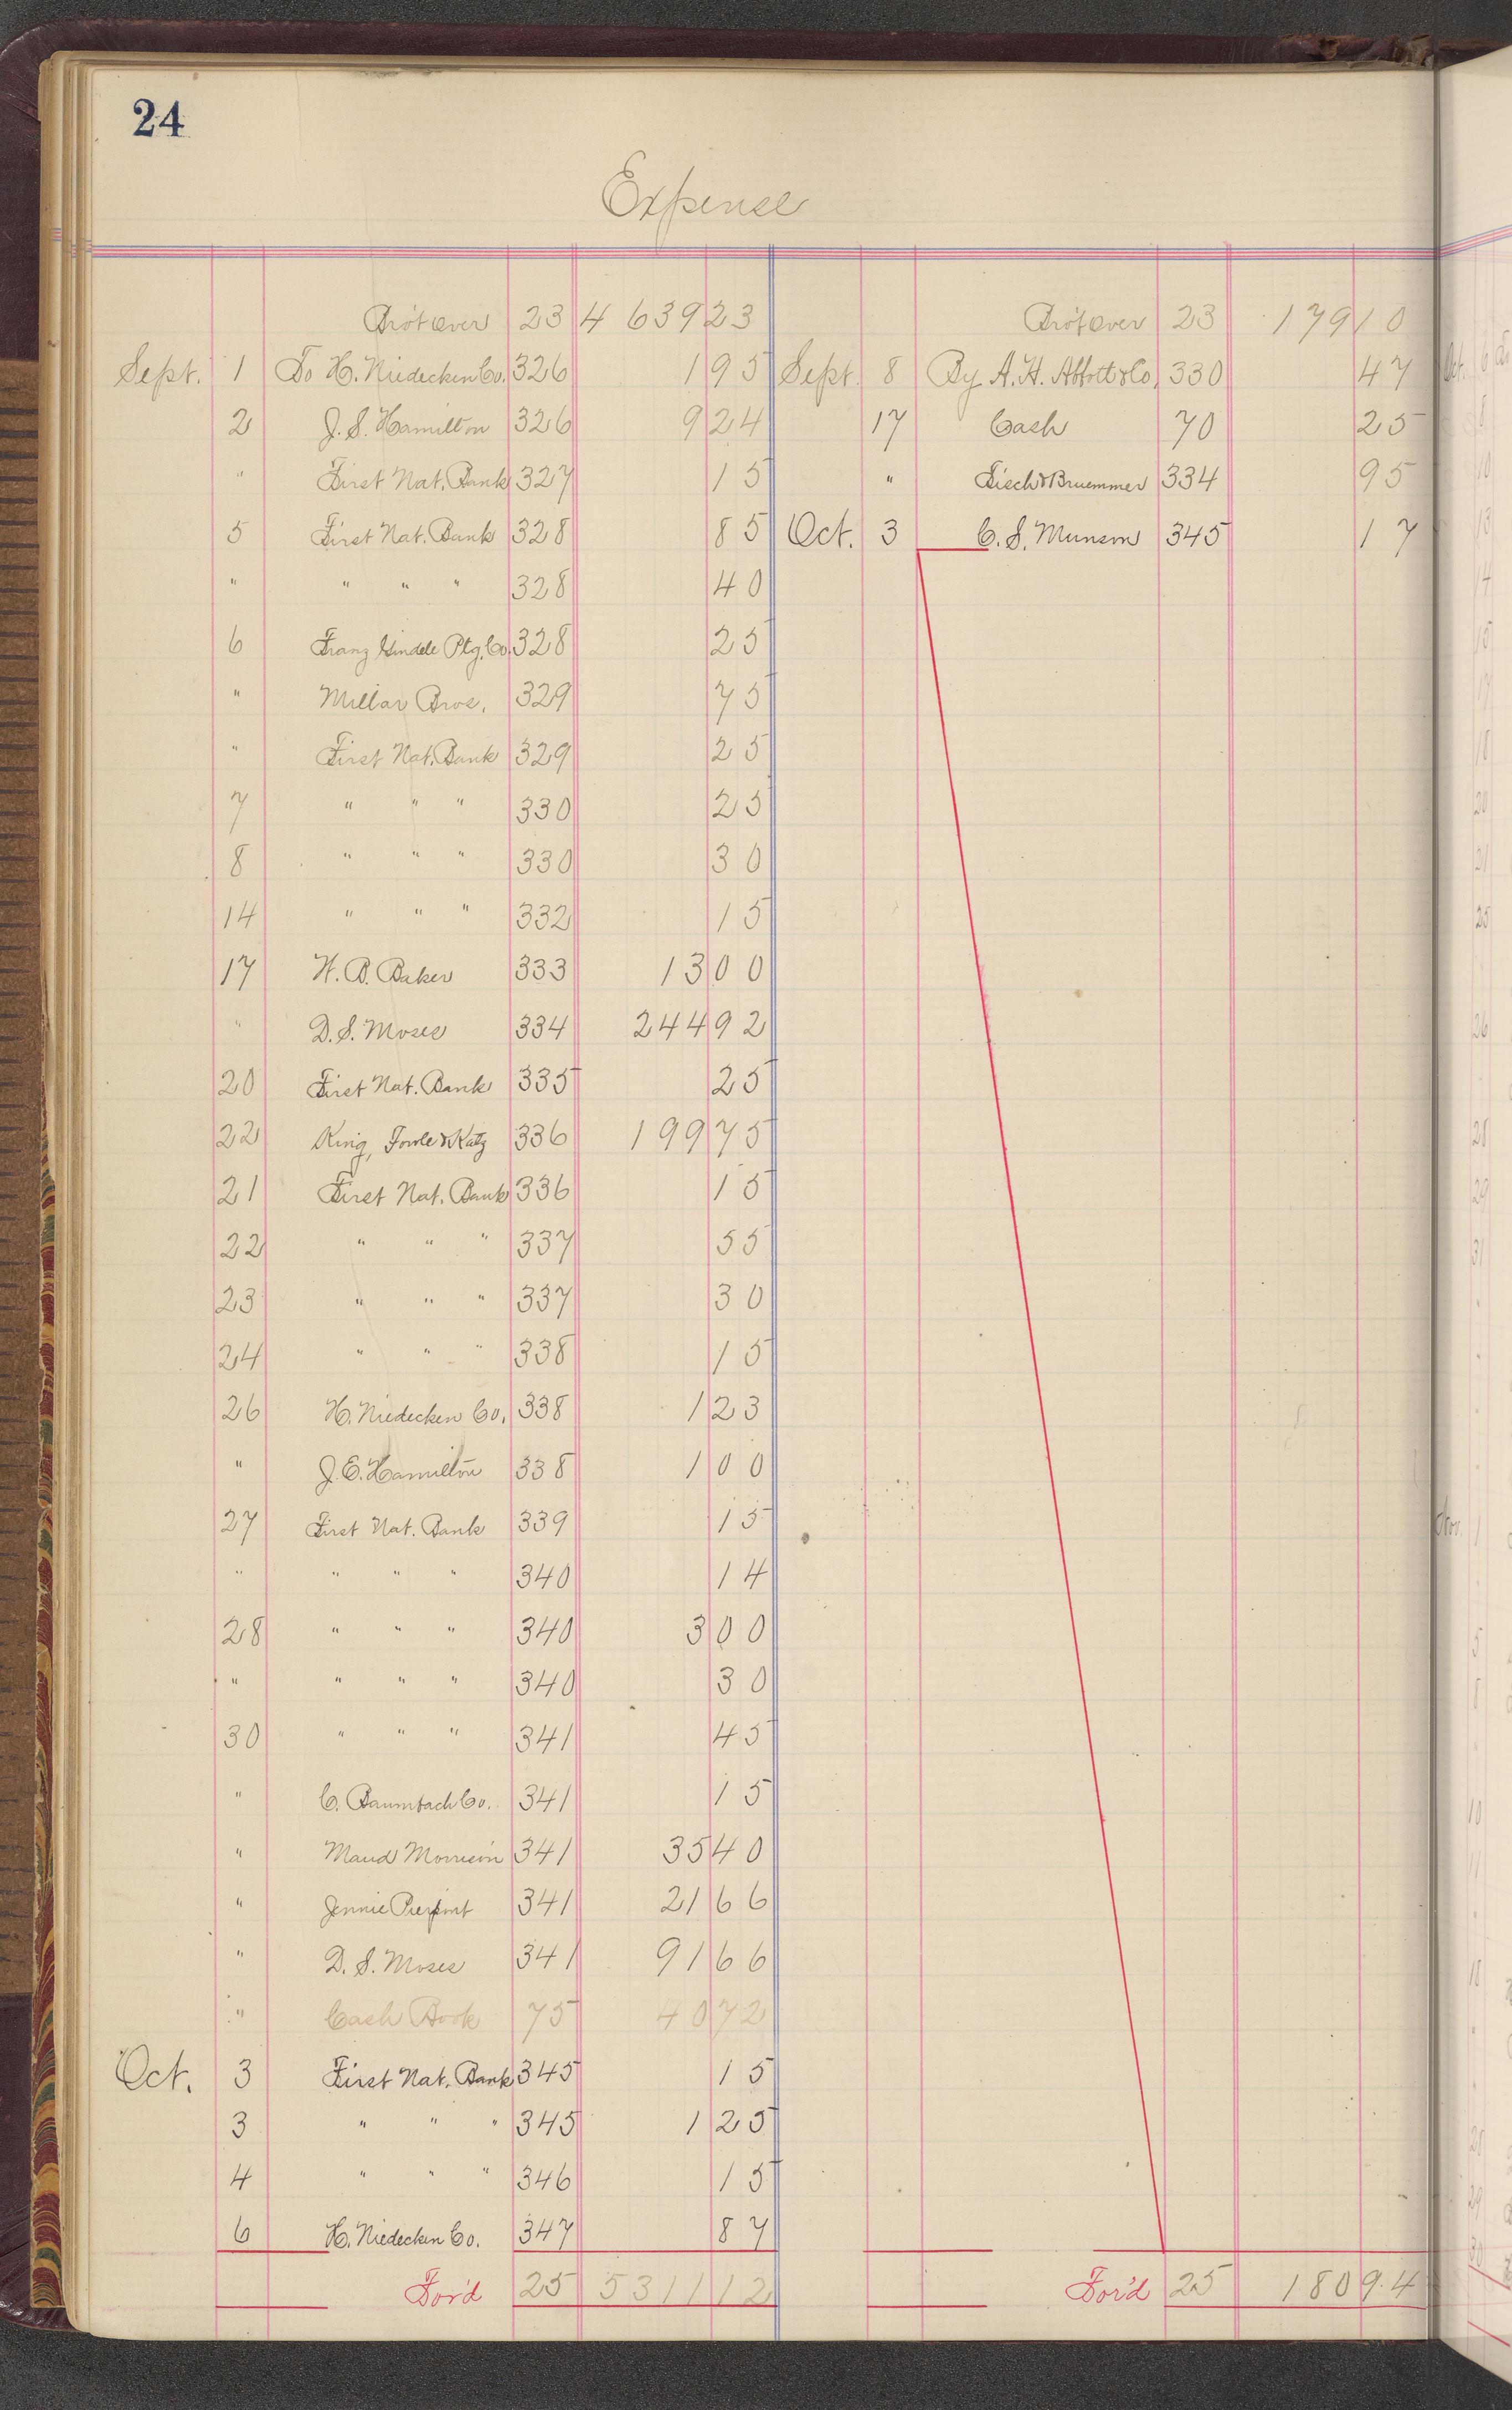 24
Expense
Bro't over 23 4 639 23 Bro't over 23 179 10
Sept. 1 To H. Niedecken Co. 326 1 95 Sept. 8 By A. H. Abbott & Co. 330 47
2 J. S. Hamilton 326 9 24 17 Cash 70 25
" First Nat. Bank 327 15 " Fisch & Bruemmer 334 95
5 First Nat. Bank 328 85 Oct. 3 C. S. Munson 345 17
" " " " 328 40
6 Franz Gindele Ptg. Co. 328 25
" Millar Bros. 329 75
" First Nat. Bank 329 25
7 " " " 330 25
8 " " " 330 30
14 " " " 332 15
17 H. B. Baker 333 13 00
" D. S. Moses 334 244 92
20 First Nat. Bank 335 25
22 King, Fowle & Katz 336 199 75
21 First Nat. Bank 336 15
22 " " " 337 55
23 " " " 337 30
24 " " " 338 15
26 H. Niedecken Co. 338 1 23
" J. E. Hamilton 338 1 00
27 First Nat. Bank 339 15
" " " " 340 14
28 " " " 340 3 00
" " " " 340 30
30 " " " 341 45
" C. Baumbach Co. 341 15
" Maud Morrison 341 35 40
" Jennie Pierpont 341 21 66
" D. S. Moses 341 91 66
" Cash Book 75 40 72
Oct. 3 First Nat. Bank 345 15
3 " " " 345 1 25
4 " " " 346 15
6 H. Niedecken Co. 347 87
For'd 25 5311 12 For'd 25 180 94